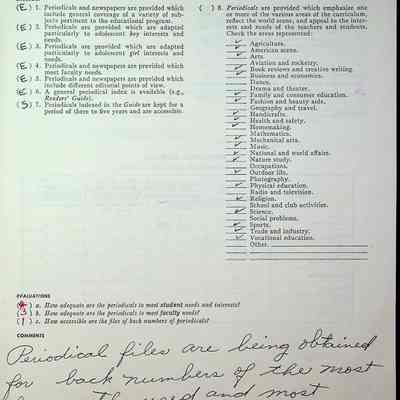 (E) 1. Periodicals and newspapers are provided which
include general coverage of a variety of sub-
jects pertinent to the educational program.
(E) 2. Periodicals are provided which are adapted
particularly to adolescent boy interests and
needs.
(E) 3. Periodicals are provided which are adapted
particularly to adolescent girl interests and
needs.
(E) 4. Periodicals and newspapers are provided which
meet faculty needs.
(E) 5. Periodicals and newspapers are provided which
include different editorial points of view.
(E) 6. A general periodical index is available (e.g.,
Readers' Guide).
(S) 7. Periodicals indexed in the Guide are kept for a
period of three to five years and are accessible.
( ) 8. Periodicals are provided which emphasize one
or more of the various areas of the curriculum,
reflect the world scene, and appeal to the inter-
ests and needs of the teachers and students.
Check the areas represented:
Agriculture.
American scene.
Arts
Aviation and rocketry.
Book reviews and creative writing.
Business and economics.
Dance.
Drama and theater.
Family and consumer education.
Fashion and beauty aids.
Geography and travel.
Handicrafts.
Health and safety.
Homemaking.
Mathematics.
Mechanical arts.
Music.
National and world affairs.
Nature study.
Occupations.
Outdoor life.
Photography.
Physical education.
Radio and television.
Religion.
School and club activities.
Science.
Social problems.
Sports.
Trade and industry.
Vocational education.
Other.
EVALUATIONS
( ) a. How adequate are the periodicals to meet student needs and interests?
(3) b. How adequate are the periodicals to meet faculty needs?
(1) c. How accessible are the files of back numbers of periodicals?
COMMENTS
Periodical files are being obtained
for back numbers of the most
used and most